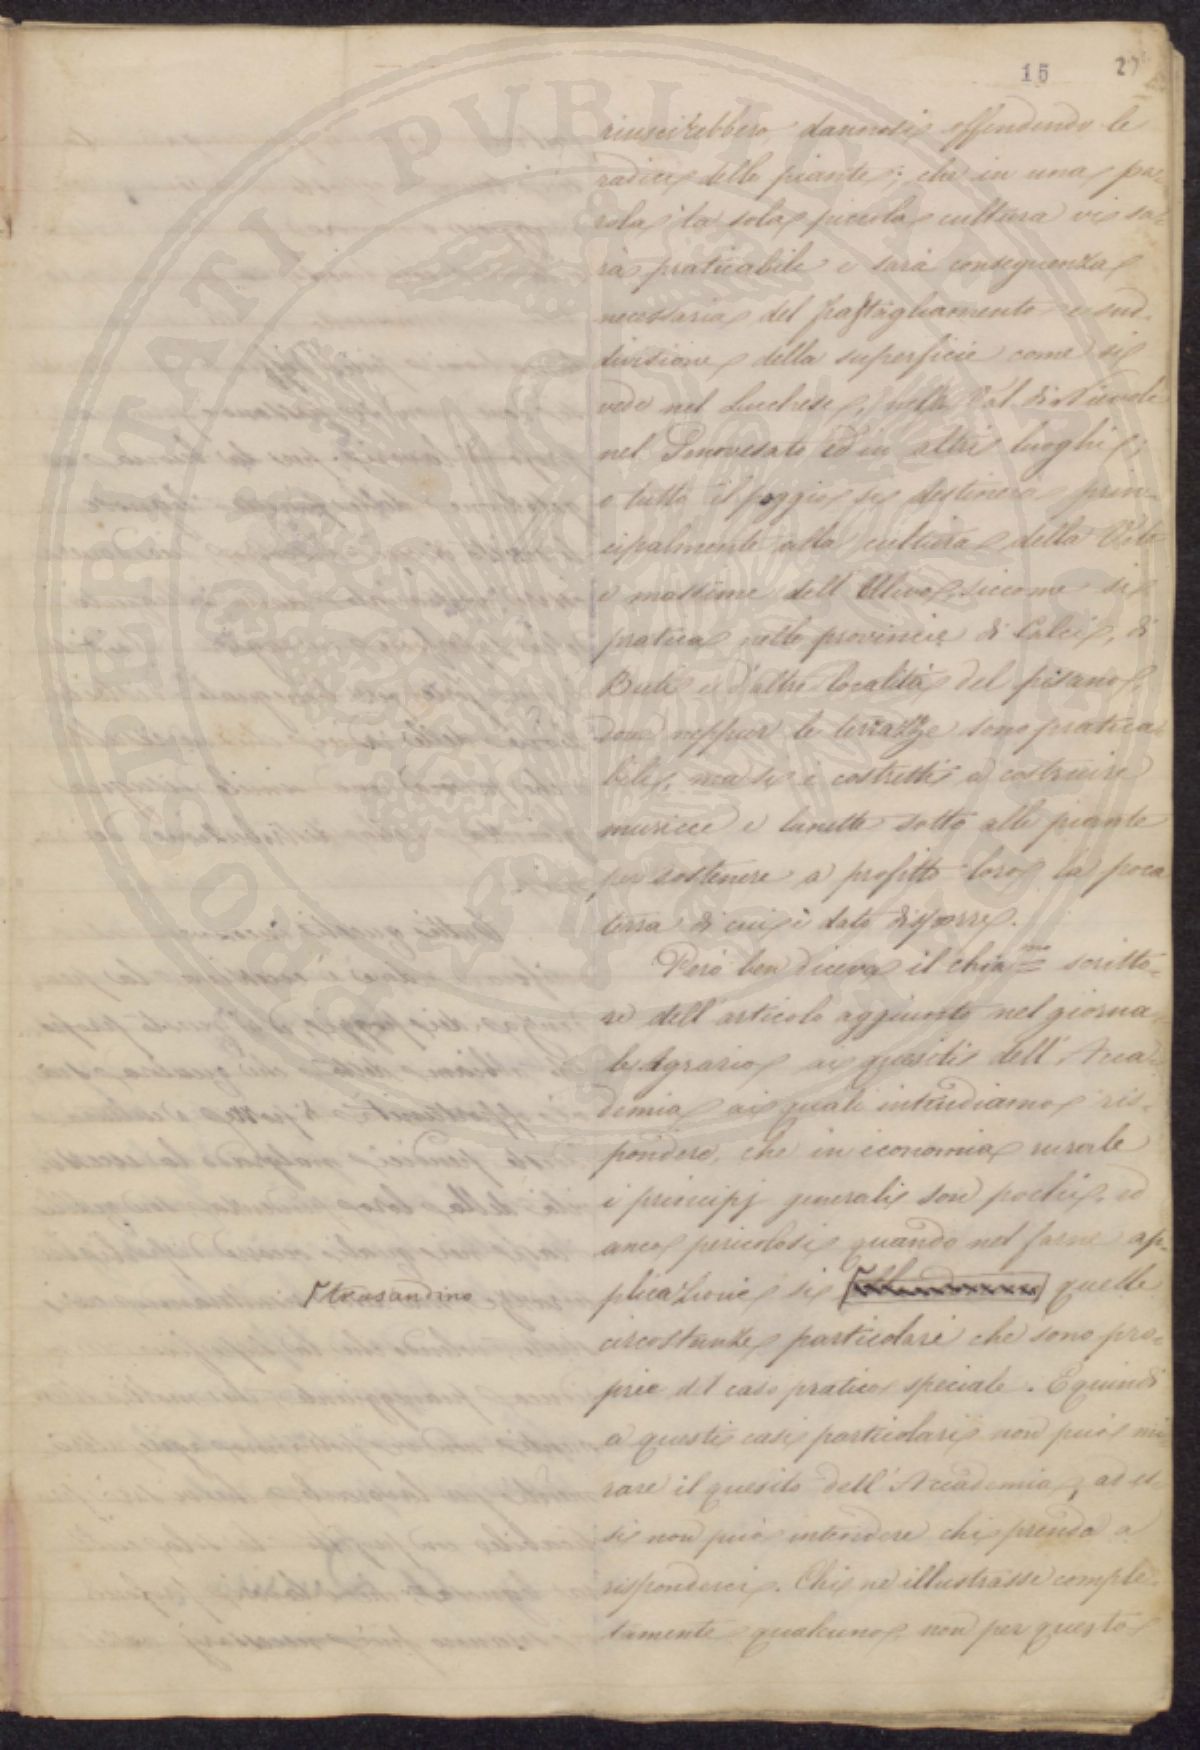 15 27
riuscirebbero dannosi offendendo le
radici delle piante; che in una pa-
rola la sola piccola cultura vi sa-
rà praticabile e sarà conseguenza
necessaria del frastagliamento e sud-
divisione della superficie come si
vede nel Lucchese, nella Val di Nievole
nel Genovesato ed in altri luoghi;
e tutto il poggio si destinerà prin-
cipalmente alla cultura della Vite
e massime dell'Ulivo siccome si
pratica nelle provincie di Calci, di
Buti e d'altre località del pisano,
dove neppur le terrazze sono pratica-
bili, ma si è costretti a costruire
muricce e lunette sotto alle piante
per sostenere a profitto loro la poca
terra di cui è dato disporre.
Però ben diceva il chia.mo scritto-
re dell'articolo aggiunto nel giorna-
le Agrario ai quesiti dell'Acca-
demia ai quali intendiamo ris-
pondere, che in economia rurale
i principj generali son pochi, ed
anco pericolosi quando nel farne ap-
plicazione si quelle
trasandino
circostanze particolari che sono pro-
prie del caso pratico speciale. E quindi
a questi casi particolari non può mi-
rare il quesito dell'Accademia, ad es-
si non può intendere chi prenda a
risponderci. Chi ne illustrasse comple-
tamente qualcuno non per questo
POTERITATI PUBLICAE